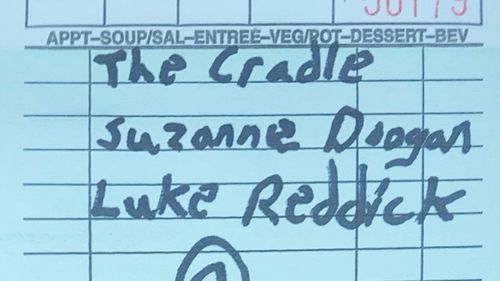 APPT–SOUP/SAL–ENTREÉ–VEG/POT–DESSERT–BEV
The Cradle
Suzanne Doogan
Luke Reddick